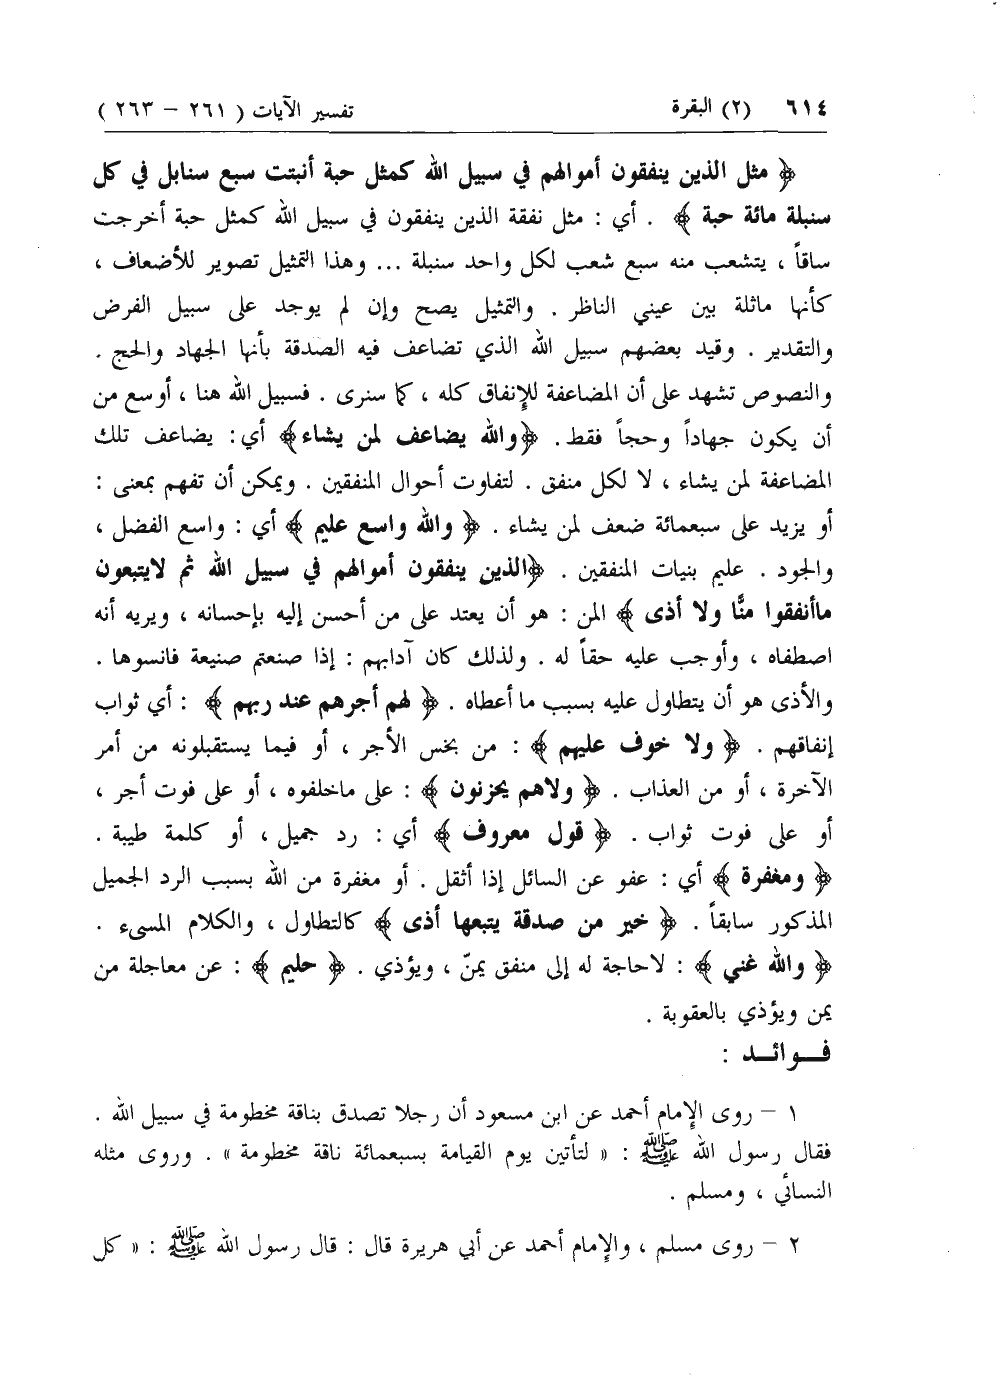 ٦١٤ (٢) البقرة تفسير الآيات ( ٢٦١ – ٢٦٣ )
﴿ مثل الذين ينفقون أموالهم في سبيل الله كمثل حبة أنبتت سبع سنابل في كل
سنبلة مائة حبة ﴾ . أي : مثل نفقة الذين ينفقون في سبيل الله كمثل حبة أخرجت
ساقاً ، يتشعب منه سبع شعب لكل واحد سنبلة ... وهذا التمثيل تصوير للأضعاف ،
كأنها ماثلة بين عيني الناظر . والتمثيل يصح وإن لم يوجد على سبيل الفرض
والتقدير . وقيد بعضهم سبيل الله الذي تضاعف فيه الصدقة بأنها الجهاد والحج .
والنصوص تشهد على أن المضاعفة للإنفاق كله ، كما سنرى . فسبيل الله هنا ، أوسع من
أن يكون جهاداً وحجاً فقط. ﴿والله يضاعف لمن يشاء﴾ أي: يضاعف تلك
المضاعفة لمن يشاء ، لا لكل منفق . لتفاوت أحوال المنفقين . ويمكن أن تفهم بمعنى :
أو يزيد على سبعمائة ضعف لمن يشاء . ﴿ والله واسع عليم ﴾ أي : واسع الفضل ،
والجود . عليم بنيات المنفقين . ﴿الذين ينفقون أموالهم في سبيل الله ثم لايتبعون
ماأنفقوا منًّا ولا أذى ﴾ المن : هو أن يعتد على من أحسن إليه بإحسانه ، ويريه أنه
اصطفاه ، وأوجب عليه حقاً له . ولذلك كان آدابهم : إذا صنعتم صنيعة فانسوها .
والأذى هو أن يتطاول عليه بسبب ما أعطاه . ﴿ لهم أجرهم عند ربهم ﴾ : أي ثواب
إنفاقهم . ﴿ ولا خوف عليهم ﴾ : من بخس الأجر ، أو فيما يستقبلونه من أمر
الآخرة ، أو من العذاب . ﴿ ولاهم يحزنون ﴾ : على ماخلفوه ، أو على فوت أجر ،
أو على فوت ثواب . ﴿ قول معروف ﴾ أي : رد جميل ، أو كلمة طيبة .
﴿ ومغفرة ﴾ أي : عفو عن السائل إذا أثقل . أو مغفرة من الله بسبب الرد الجميل
المذكور سابقاً . ﴿ خير من صدقة يتبعها أذى ﴾ كالتطاول ، والكلام المسيء .
﴿ والله غني ﴾ : لاحاجة له إلى منفق يمنّ ، ويؤذي . ﴿ حليم ﴾ : عن معاجلة من
يمن ويؤذي بالعقوبة .
فــوائــد :
١ – روى الإمام أحمد عن ابن مسعود أن رجلا تصدق بناقة مخطومة في سبيل الله .
فقال رسول الله ﷺ : « لتأتين يوم القيامة بسبعمائة ناقة مخطومة » . وروى مثله
النسائي ، ومسلم .
٢ – روى مسلم ، والإمام أحمد عن أبي هريرة قال : قال رسول الله ﷺ : « كل